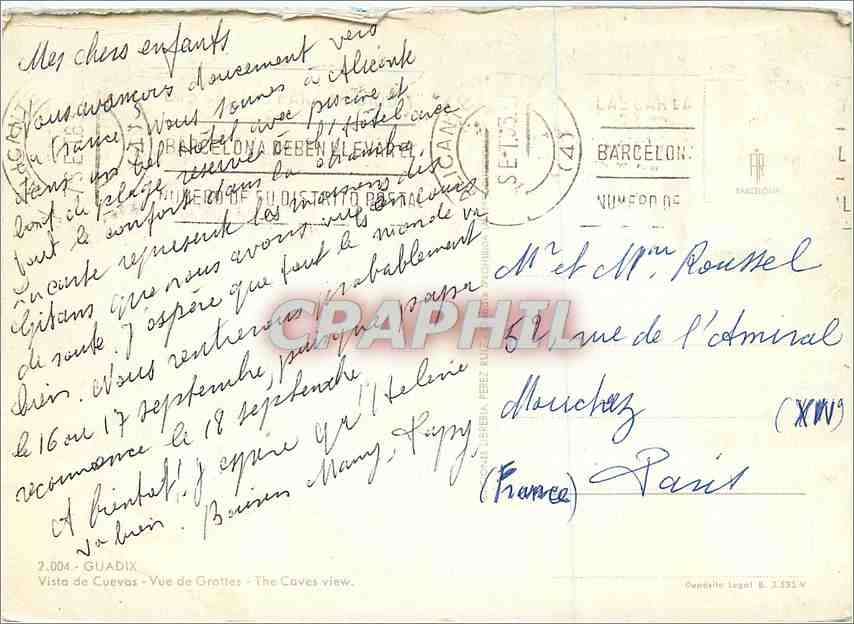 Mes chers enfants
Nous avançons doucement vers
la France. Nous sommes à Alicante
dans un bel Hôtel avec piscine et
bout de plage réservé à l'Hôtel avec
tout le confort dans la chambre,
La carte représente les maisons des
Gitans que nous avons vues en cours
de route. J'espère que tout le monde va
bien. Nous rentrerons probablement
le 16 ou 17 septembre, puisque papa
recommence le 18 septembre
A bientôt! J'espère qu'Helene
va bien. Baisers Mamy, Papy,
2.004.- GUADIX
Vista de Cuevas - Vue de Grottes - The Caves view.
BARCELONA DEBEN LLEVAR EL
NUMERO DE SU DISTRITO POSTAL
LAS CARTA
BARCELON
NUMERO DE
BARCELONA
LIBRERIA PEREZ RUIZ
CPAPHIL
Mr et Mme Roussel
52, rue de l'Amiral
Mouchez
(XIV)
(France) Paris
Depósito Legal B. 3.595-V